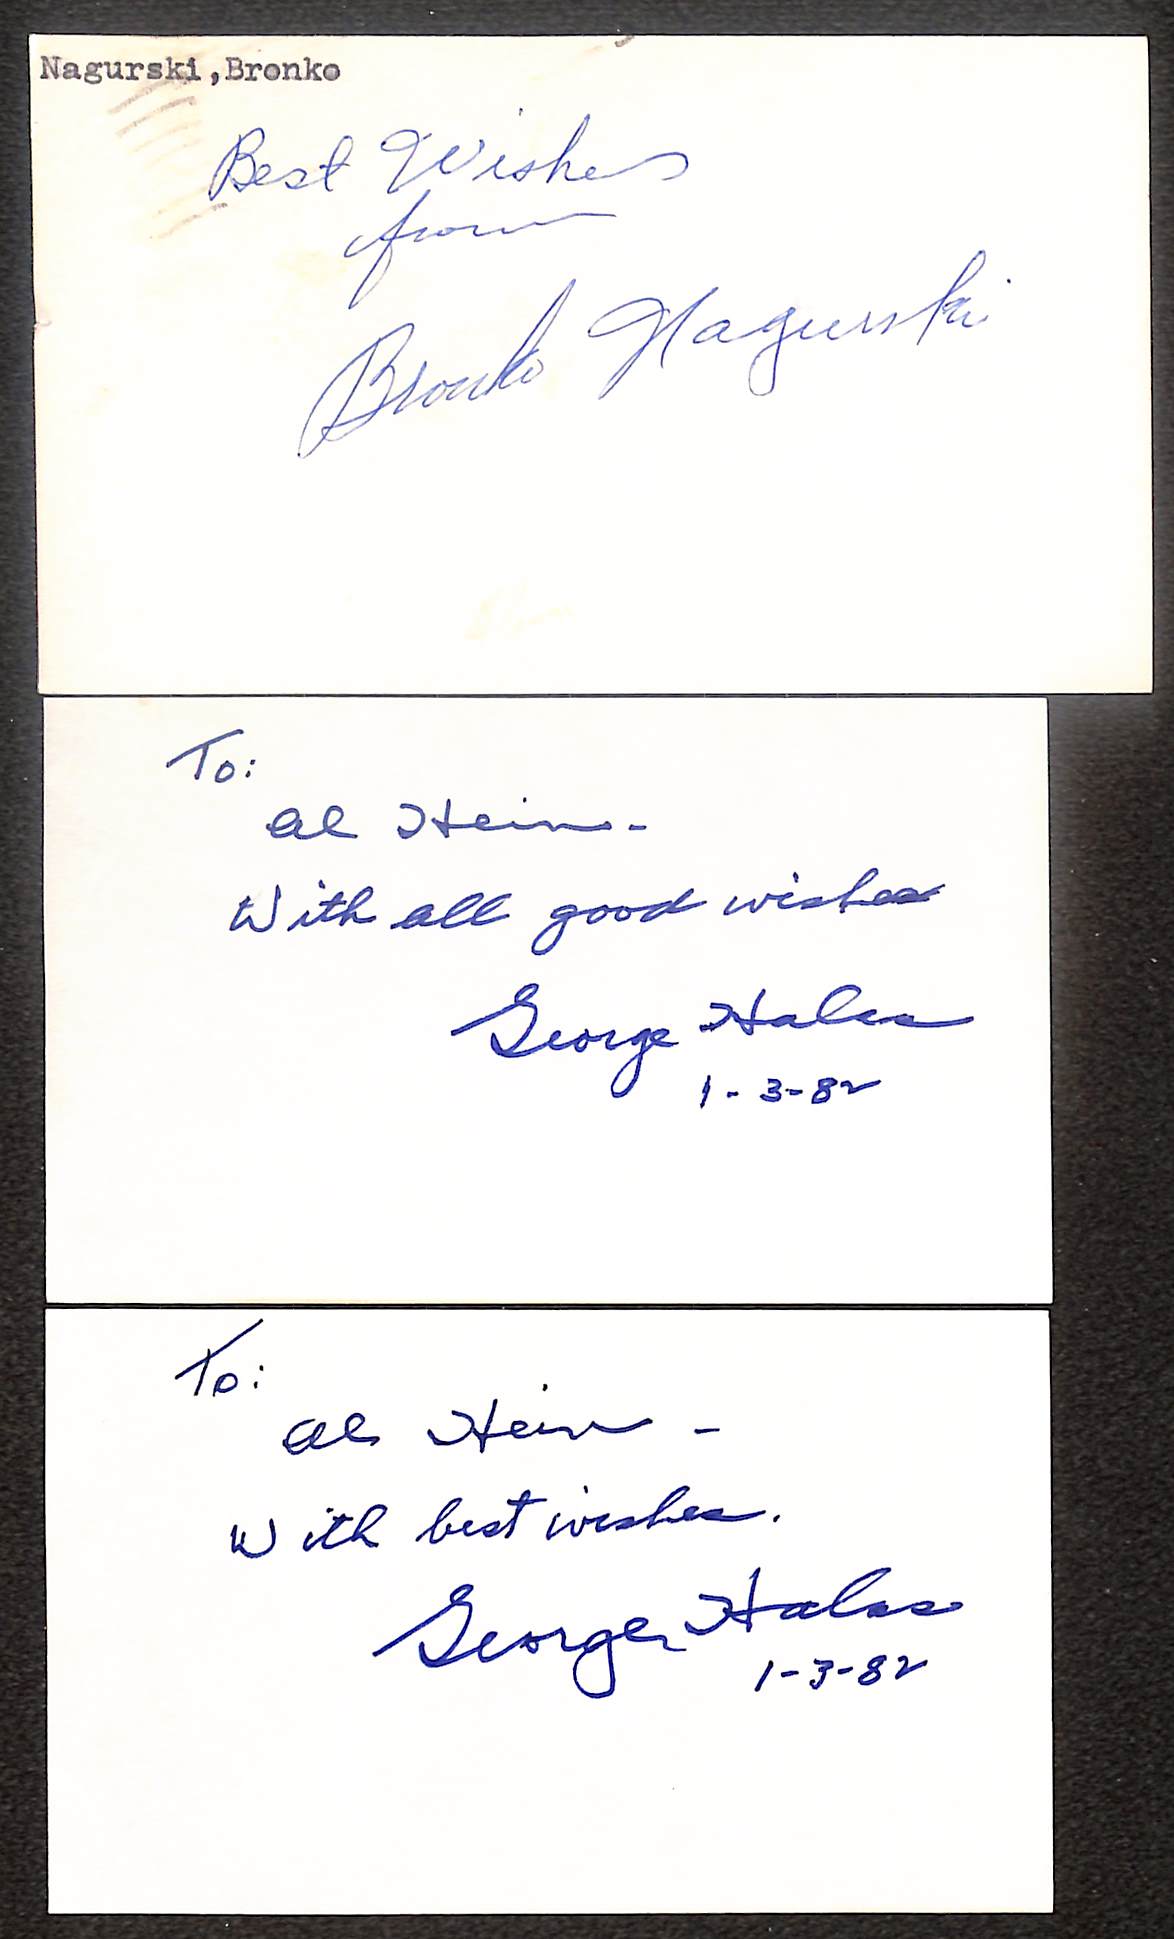 Nagurski,Bronko
Best Wishes
from
Bronko Nagurski
To:
Al Hein-
With all good wishes
George Halas
1-3-82
To:
Al Hein -
With best wishes.
George Halas
1-3-82